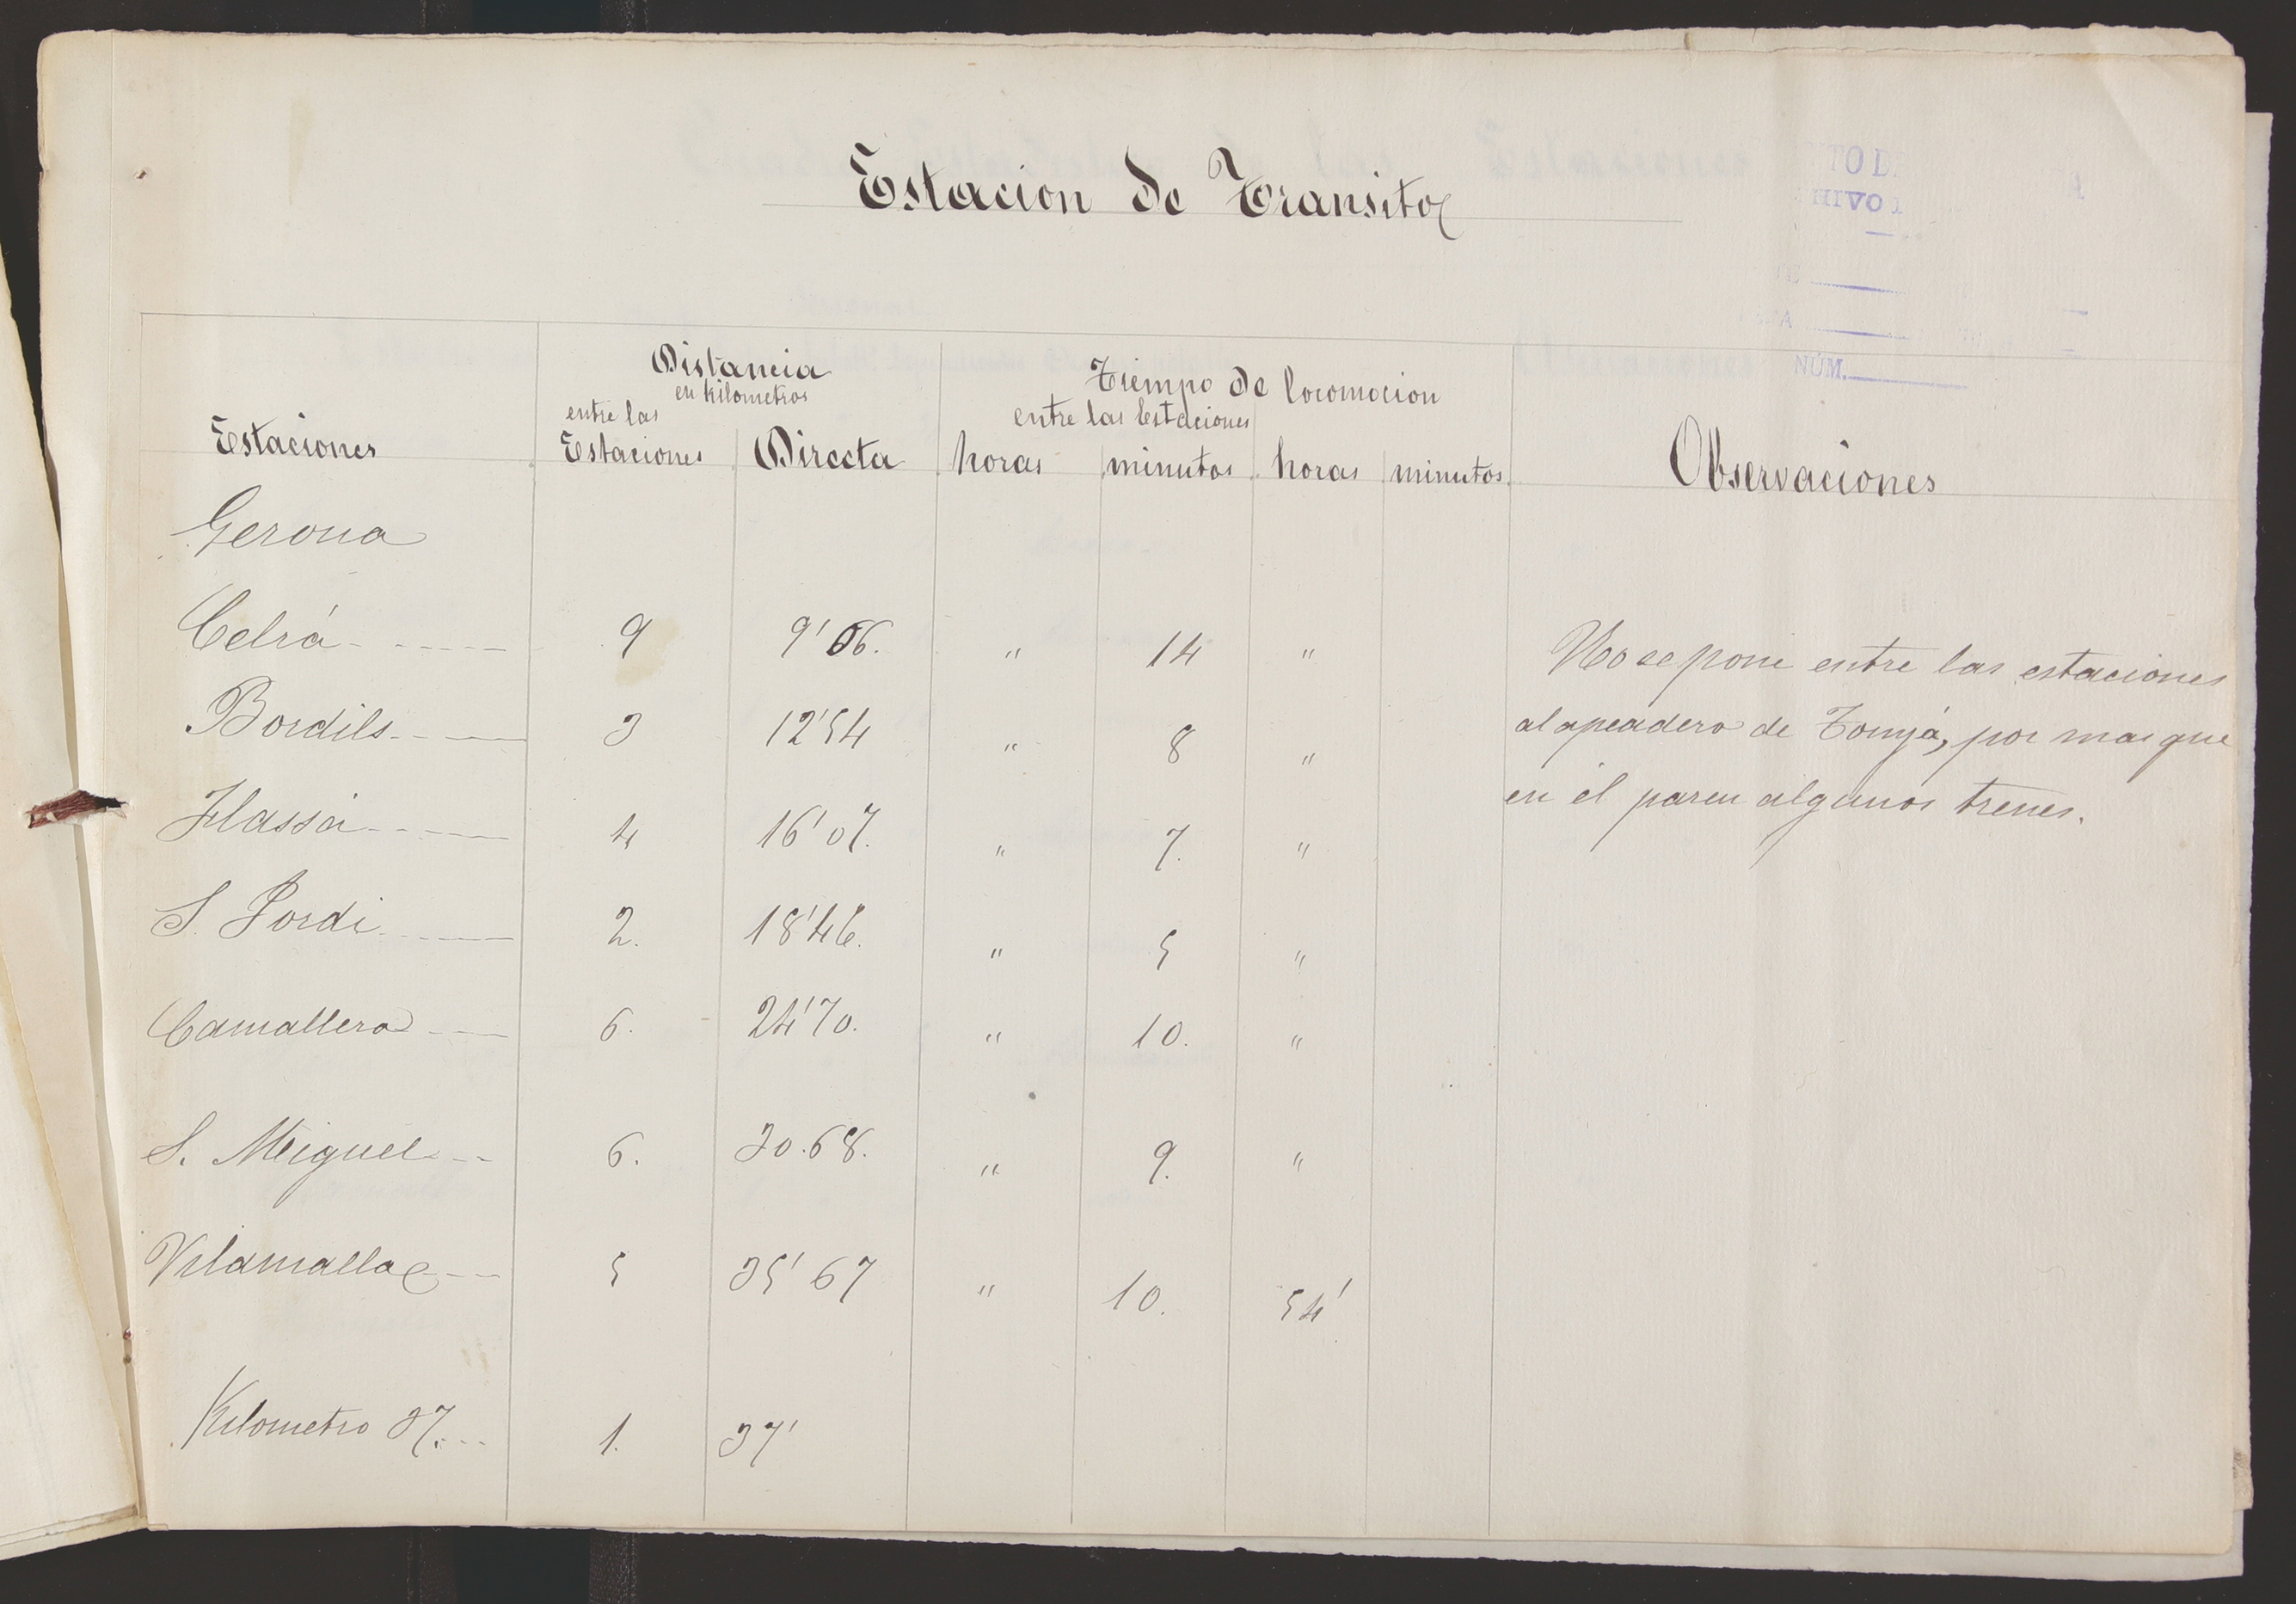 Estacion de Transito
NTO D
HIVO
NÚM.
Estaciones
Distancia
en kilometros
entre las
Estaciones Directa
Tiempo de locomocion
entre las Estaciones
horas minutos horas minutos
Observaciones
Gerona
Celrá 9 9'06. " 14 "
Bordils 3 12'54 " 8 "
Flassá 4 16'07. " 7. "
S. Jordi 2. 18'46. " 5 "
Camallera 6. 24'70. " 10. "
S. Miguel 6. 30.68. " 9. "
Vilamalla 5 35'67 " 10. 54'
Kilometro 37. 1. 37'
No se pone entre las estaciones
al apeadero de , por mas que
en él paren algunos trenes.